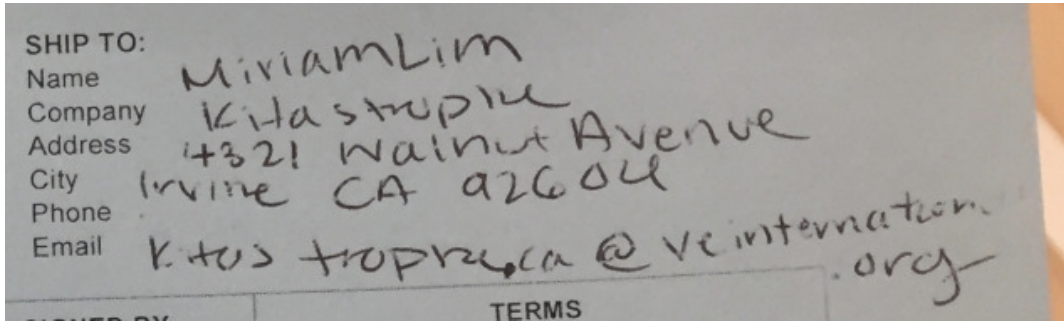 SHIP TO:
Name Miriam Lim
Company Kitastrophe
Address 4321 Walnut Avenue
City Irvine CA 92604
Phone
Email Kitastrophe.ca @ veinternation
.org
TERMS